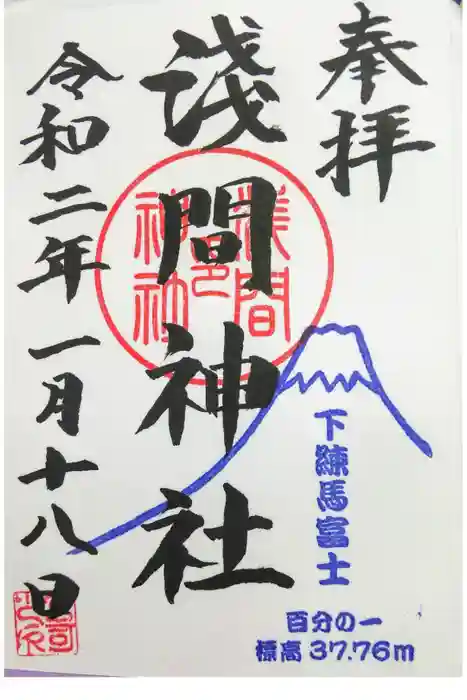 奉拝
浅間神社
浅間
邑
神社
令和二年一月十八日
下練馬富士
百分の一
標高 37.76m